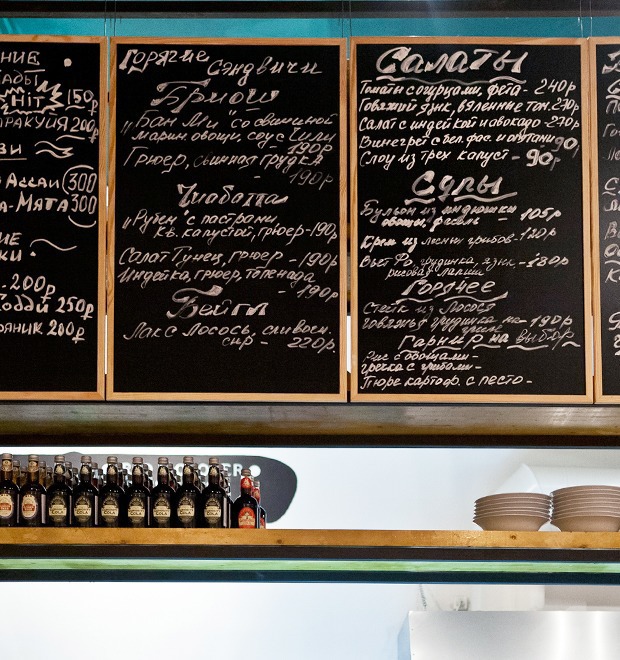 НИЕ
АДЫ
Hit 150р
АРАКУЙЯ 200р
ЗИ
Ассаи 300
А-Мята 300
ИЕ
КИ
- 200р
одди 250р
ряник 200р
Горячие
Сэндвичи
Бриош
„Бан Ми" со свининой
марин овощи, соус Чили
- 190р
Грюер, грудка
- 190р
Чиабатта
„Рубен" с пастрами,
кв. капустой, грюер - 190р
Салат Тунец, Грюер - 190р
Индейка, грюер, тапенада
- 190р
Бейгл
Лакс Лосось, сливочн.
сыр - 220р.
Салаты
Томаты огурцы, фета - 240р
Говяжий язык, вяленые том. 270р
Салат с индейкой и авокадо - 270р
Винегрет с бел. фас. и 90р
Слоу из трех капуст - 90р
Супы
Бульон из индюшки
овощи, фасоль - 105р
Крем из лесных грибов - 120р
Вьет Фо, грудинка, язык, - 180р
рисовая лапша
Горячее
Стейк из Лосося
говяжья грудинка на гриле - 190р
Гарнир на выбор
Рис с овощами -
гречка с грибами -
Пюре картоф. с песто -